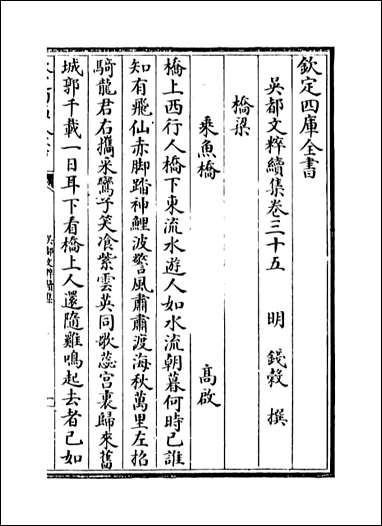 欽定四庫全書
吳都文粹續集卷三十五　明　錢穀　撰
橋梁
乘魚橋　高啟
橋上西行人橋下東流水遊人如水流朝暮何時已誰
知有飛仙赤脚踏神鯉波驚風肅肅渡海秋萬里左招
騎龍君右攜采鸞子笑飡紫雲英同歌蕊宮裏歸來舊
城郭千載一日耳下看橋上人還隨雞鳴起去者已如
吳都文粹續集